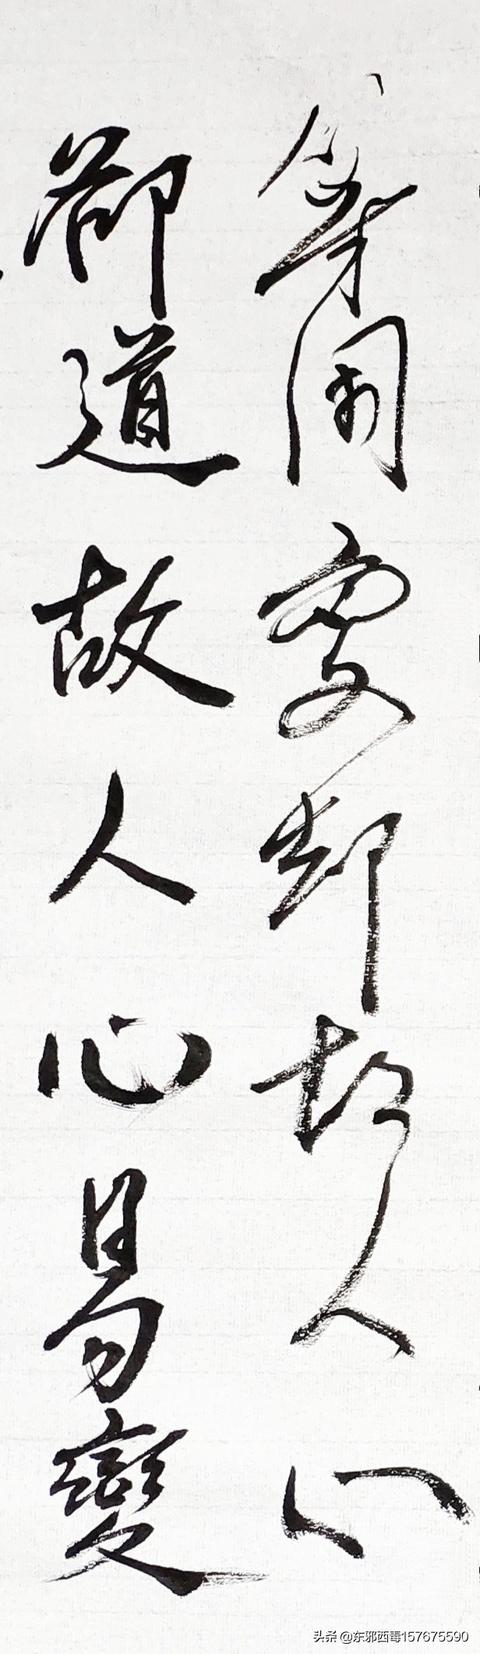 等闲变却故人心
卻道故人心易變
头条 @东邪西毒157675590